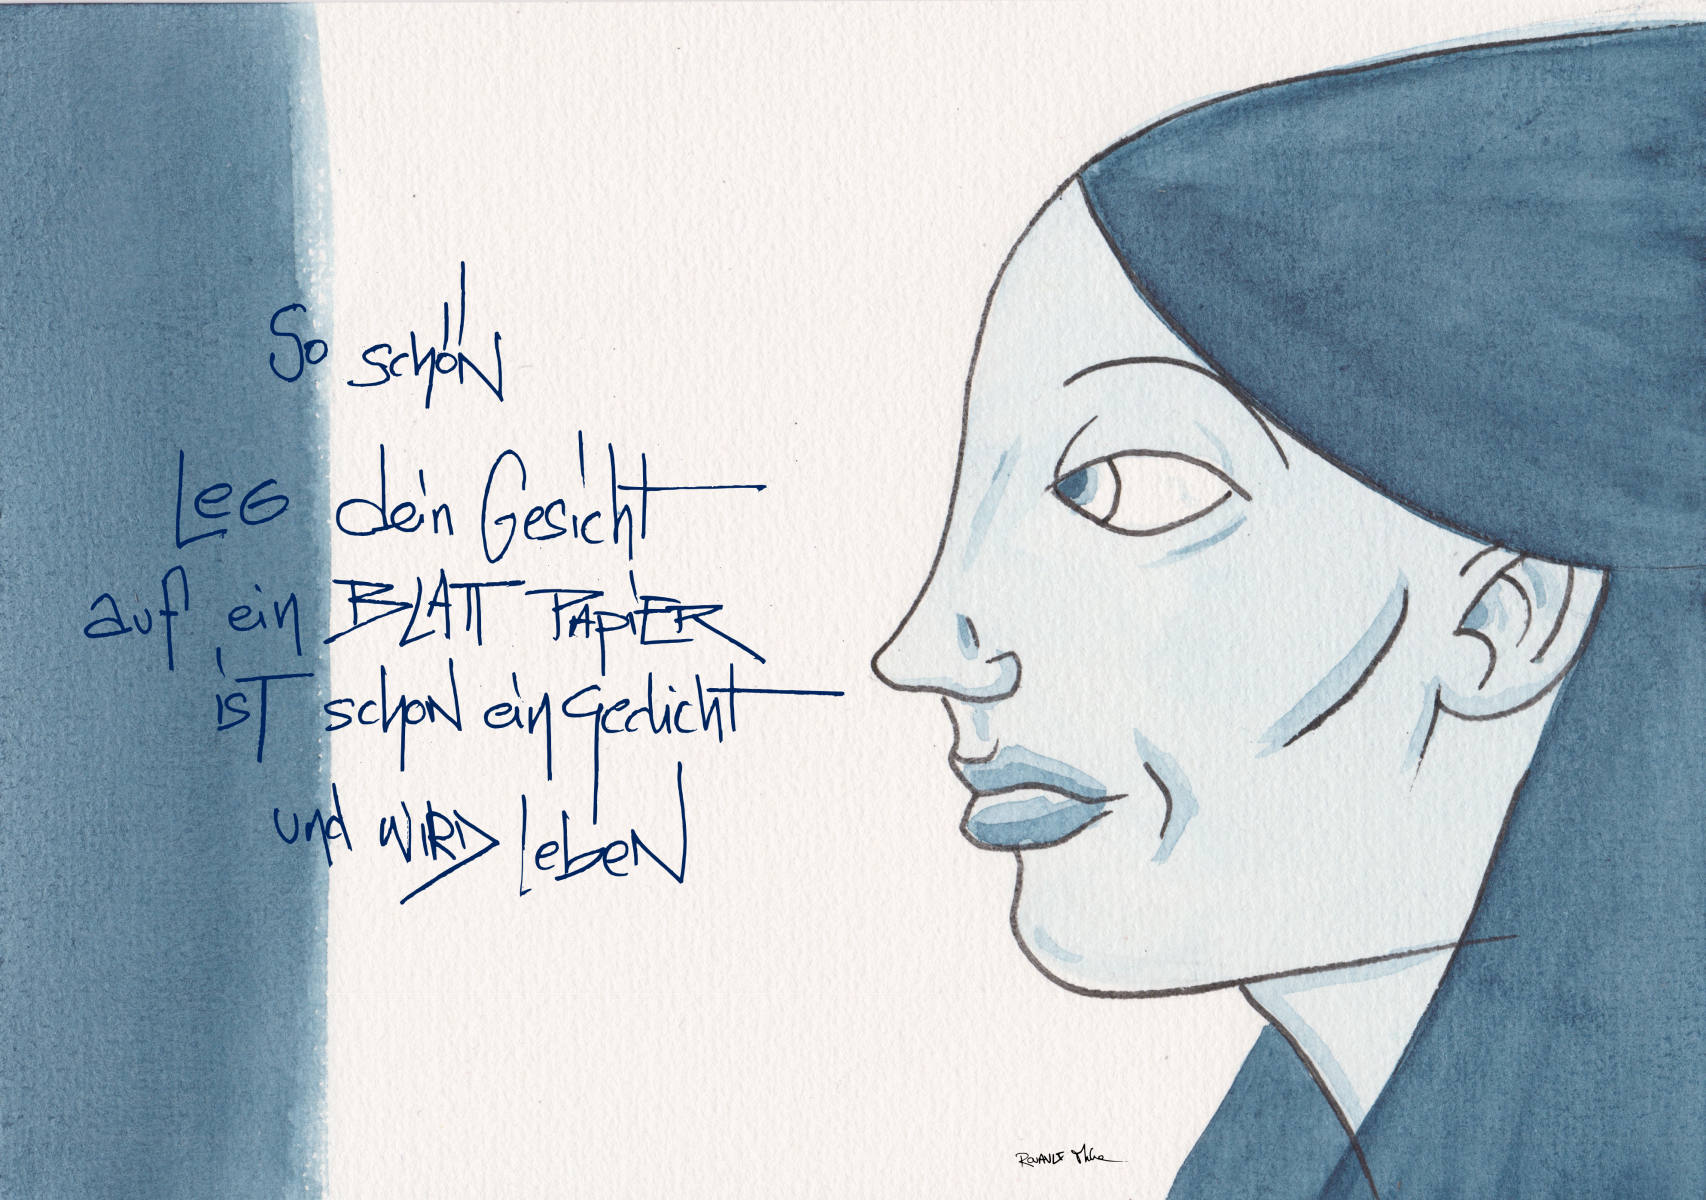 So schön
Leg dein Gesicht
auf ein BLATT PAPiER
ist schon ein Gedicht
und WIRD leben